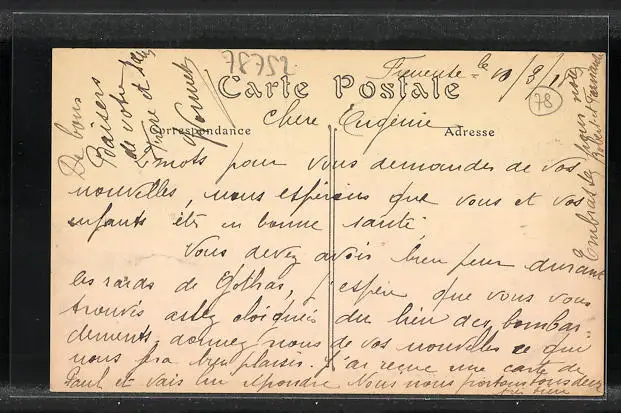 78752
Carte Postale
Correspondance
Adresse
le 10/3/18
78
Chere Eugénie
2 mots pour vous demander de vos
nouvelles, nous espérons que vous et vos
enfants êtes en bonne santé.
Vous devez avoir bien peur durant
les raids de Gothas, j'espère que vous vous
trouvés assez éloignés du lieu des bombar-
dements, donnez nous de vos nouvelles ce qui
nous fra bien plaisir. J'ai reçue une carte de
Paul et vais lui répondre Nous nous portons tous deux
très bien
Embrassez pour nous
Robert et Fernande
De bons
Baisers
de votre
Frère et